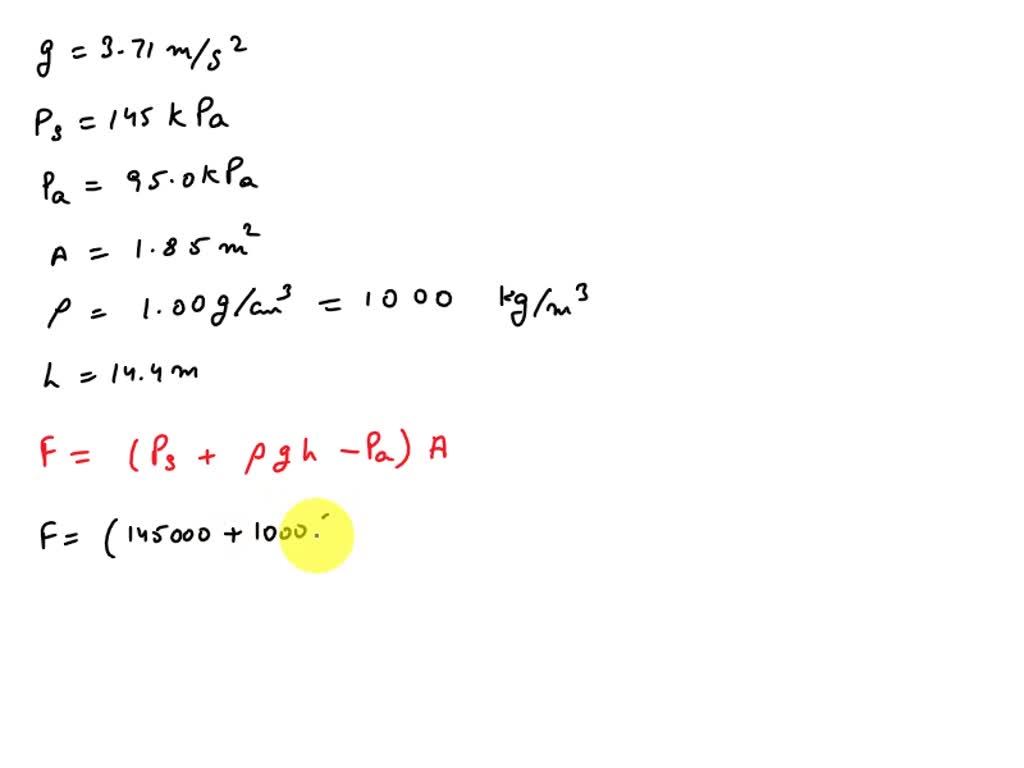 g = 3.71 m/s²
Ps = 145 kPa
Pa = 95.0 kPa
A = 1.85 m²
ρ = 1.00 g/cm³ = 1000 kg/m³
h = 14.4 m
F = (Ps + ρgh - Pa) A
F = (145000 + 1000.